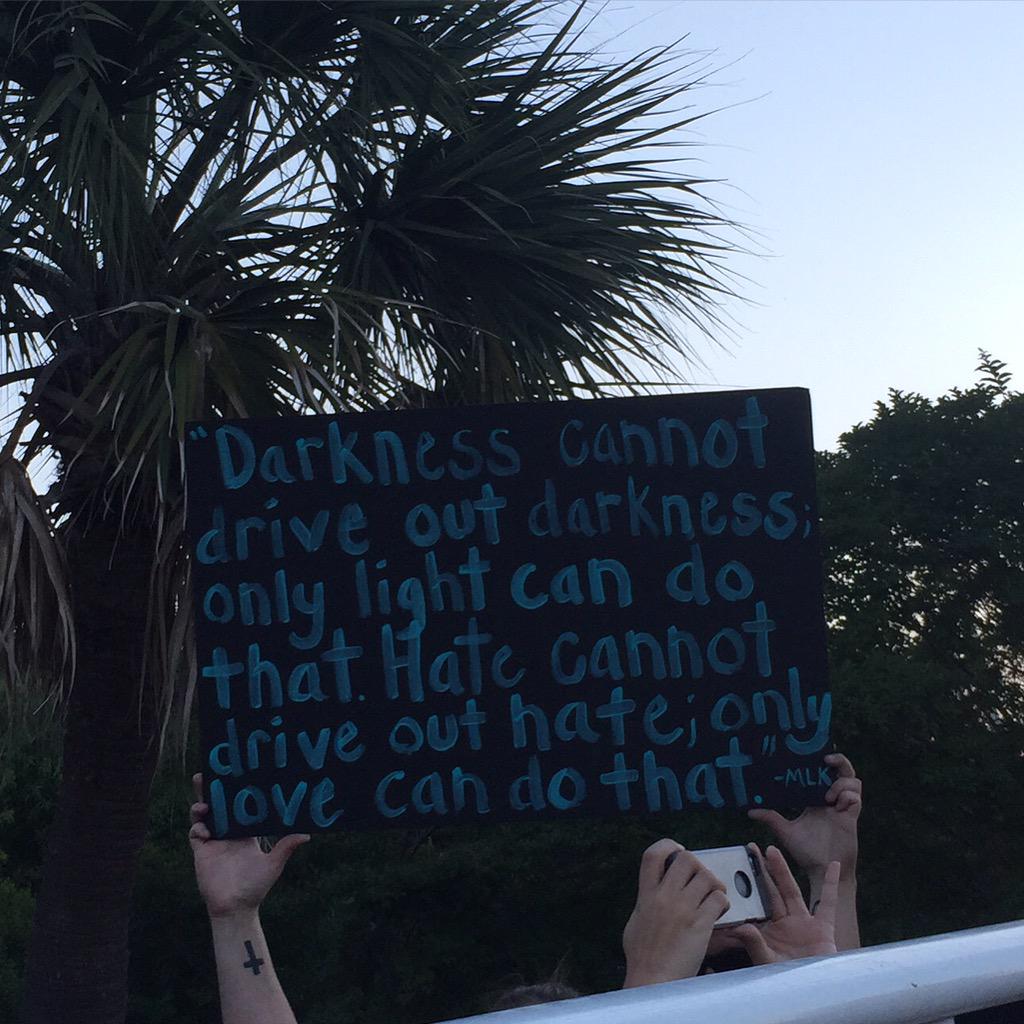 "Darkness cannot
drive out darkness;
only light can do
that. Hate cannot
drive out hate; only
love can do that."
-MLK